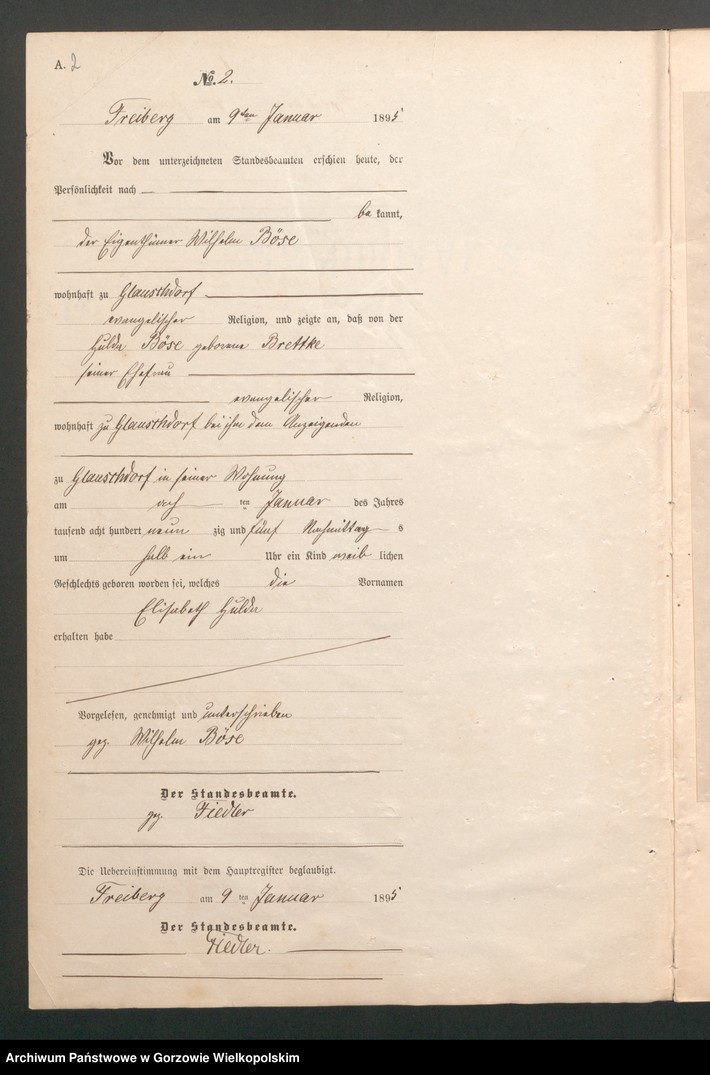 A. 2
No. 2.
Freiberg am 9ten Januar 1895
Vor dem unterzeichneten Standesbeamten erschien heute, der
Persönlichkeit nach
be kannt,
der Eigenthümer Wilhelm Böse
wohnhaft zu Glauschdorf
evangelischer Religion, und zeigte an, daß von der
Hulda Böse geborene Brettke
seiner Ehefrau
evangelischer Religion,
wohnhaft zu Glauschdorf bei ihm dem Anzeigenden
zu Glauschdorf in seiner Wohnung
am ach ten Januar des Jahres
tausend acht hundert neun zig und fünf Nachmittag s
um halb ein Uhr ein Kind weib lichen
Geschlechts geboren worden sei, welches die Vornamen
Elisabeth Hulda
erhalten habe
Vorgelesen, genehmigt und unterschrieben
gez. Wilhelm Böse
Der Standesbeamte.
gez. Fiedler
Die Uebereinstimmung mit dem Hauptregister beglaubigt.
Freiberg am 9 ten Januar 1895
Der Standesbeamte.
Fiedler.
Archiwum Państwowe w Gorzowie Wielkopolskim